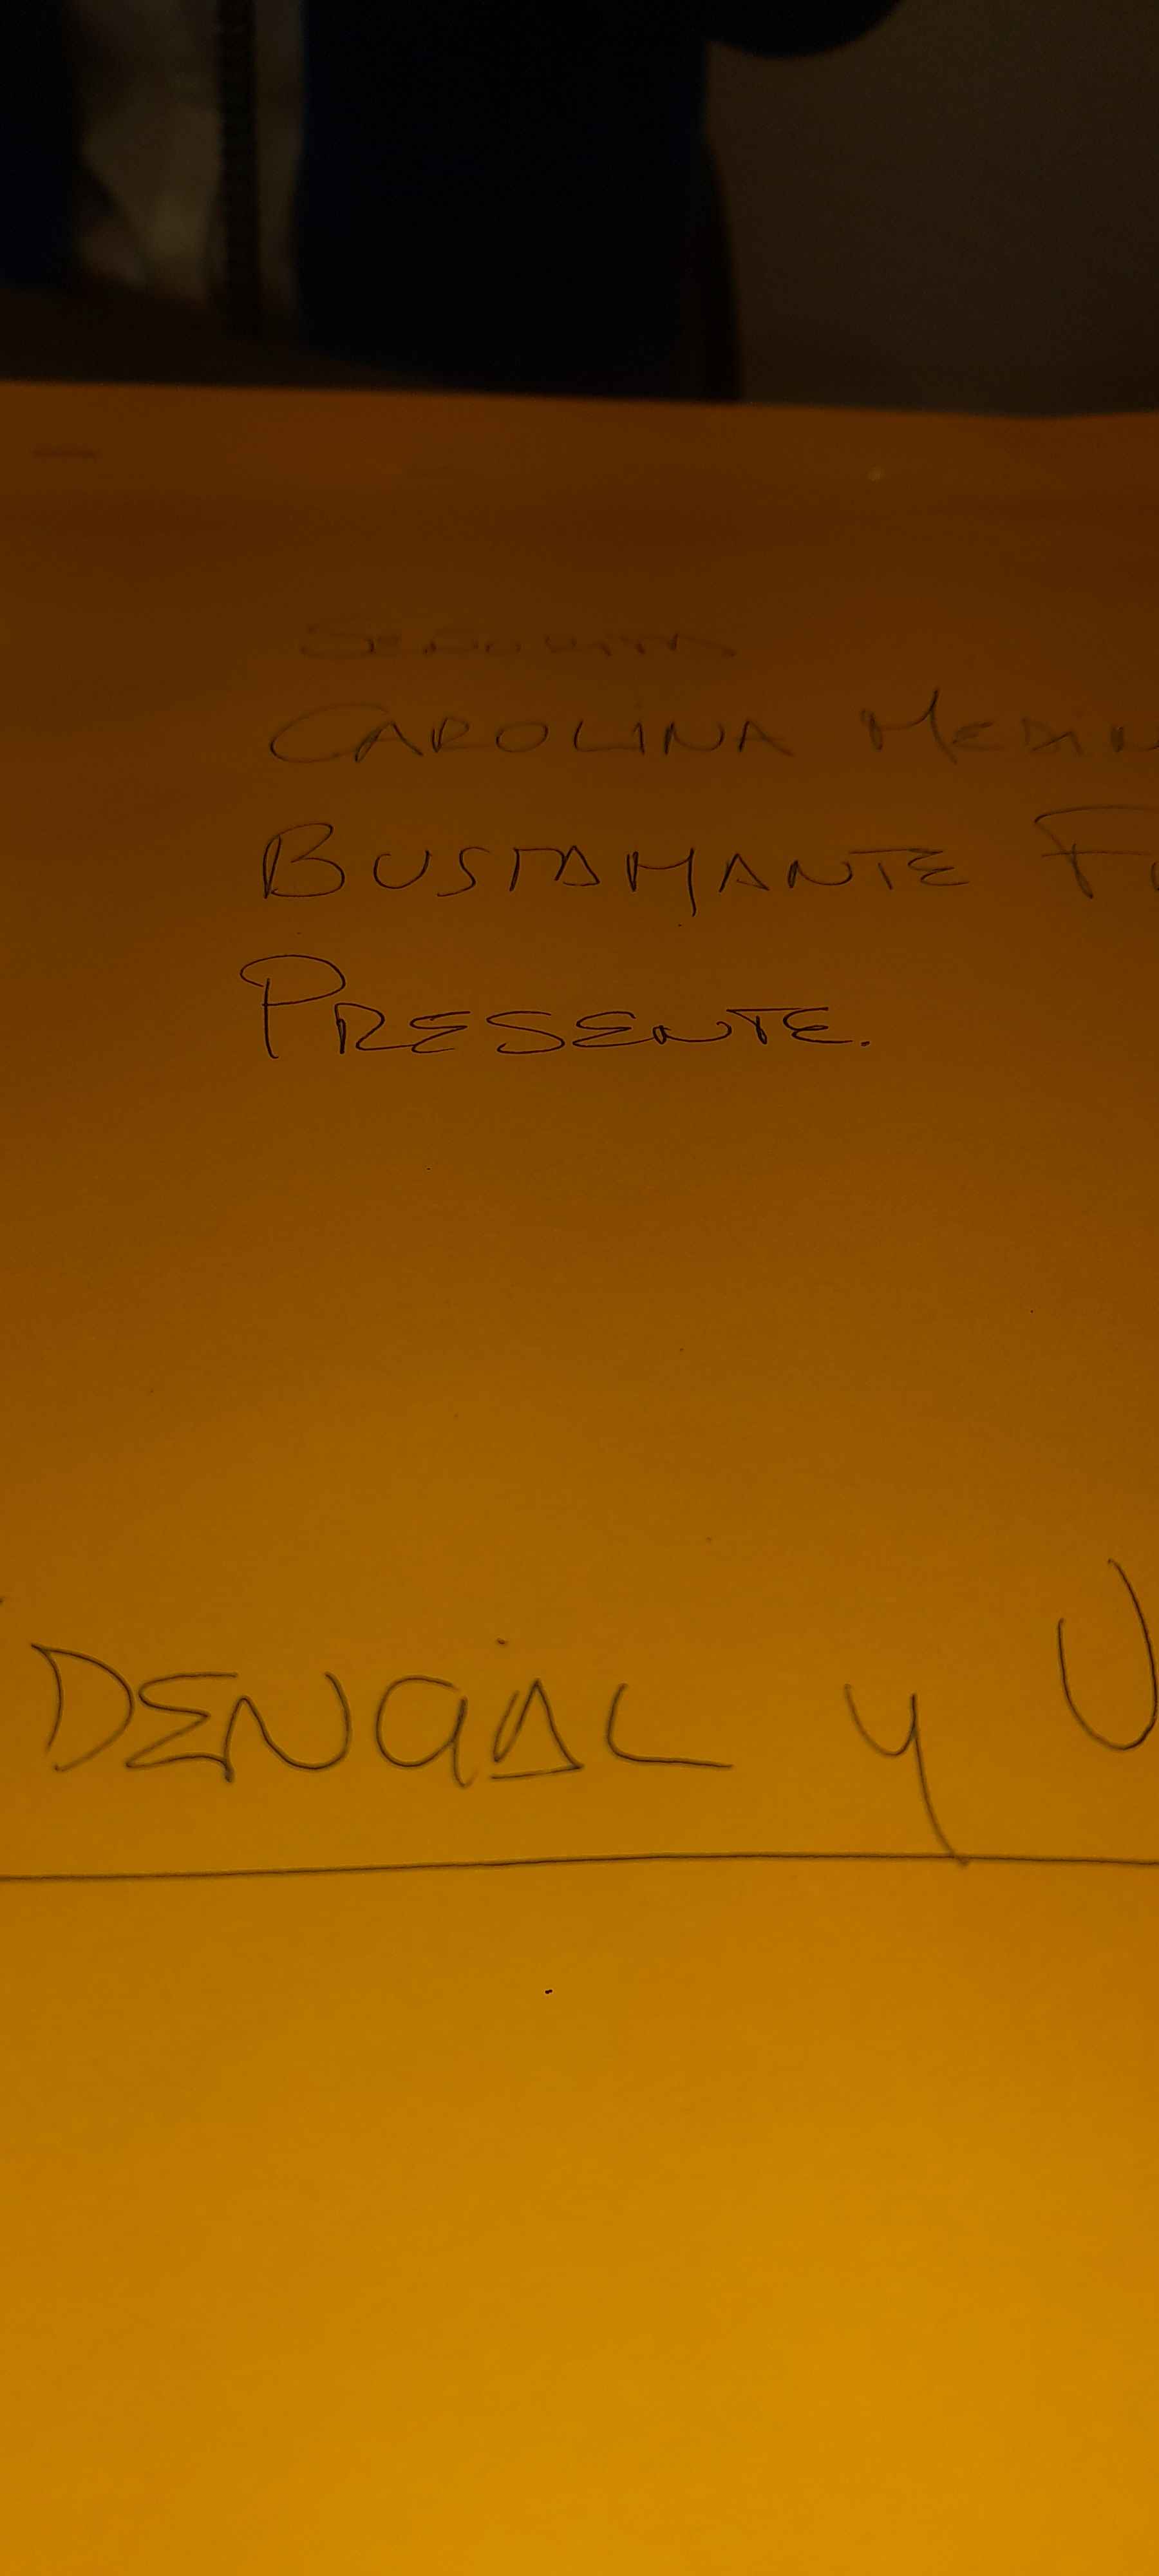 Señorita
CAROLINA MEDIN
BUSTAMANTE F
PRESENTE.
DENCIAL y U